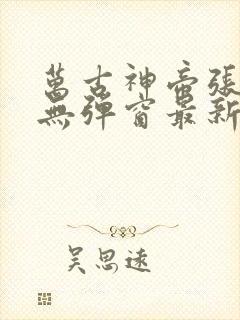 萬古神帝張
無彈窗最新
吴思遠